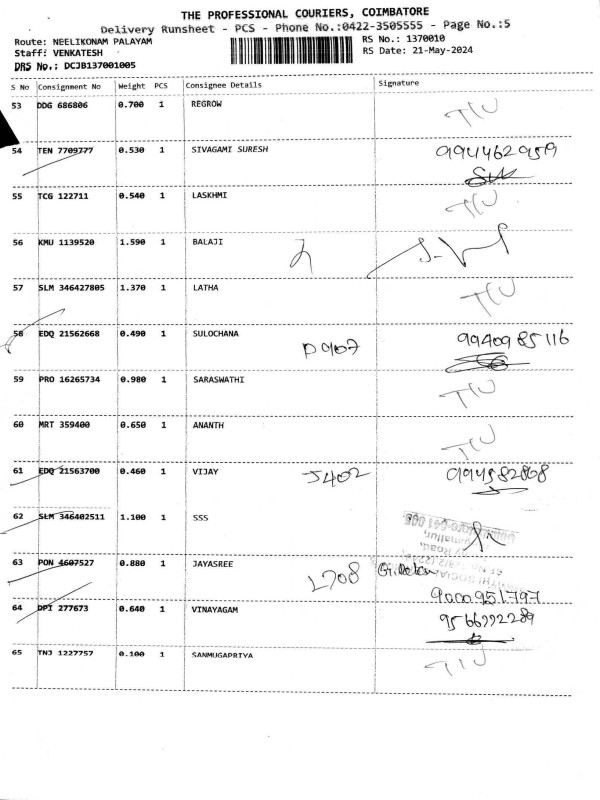 THE PROFESSIONAL COURIERS, COIMBATORE
Delivery Runsheet - PCS - Phone No.:0422-3505555 - Page No.:5
Route: NEELIKONAM PALAYAM RS No.: 1370010
Staff: VENKATESH RS Date: 21-May-2024
DRS No.: DCJB137001005
S No Consignment No Weight PCS Consignee Details Signature
53 DDG 686806 0.700 1 REGROW
54 TEN 7709777 0.530 1 SIVAGAMI SURESH 9944629519
55 TCG 122711 0.540 1 LASKHMI
56 KMU 1139520 1.590 1 BALAJI
57 SLM 346427805 1.370 1 LATHA
58 EDQ 21562668 0.490 1 SULOCHANA D907 9940985116
59 PRO 16265734 0.980 1 SARASWATHI
60 MRT 359400 0.650 1 ANANTH
61 EDQ 21563700 0.460 1 VIJAY J402
62 SLM 346402511 1.100 1 SSS
63 PON 4607527 0.880 1 JAYASREE L708
9000951797
64 DPI 277673 0.640 1 VINAYAGAM
65 TNJ 1227757 0.100 1 SANMUGAPRIYA